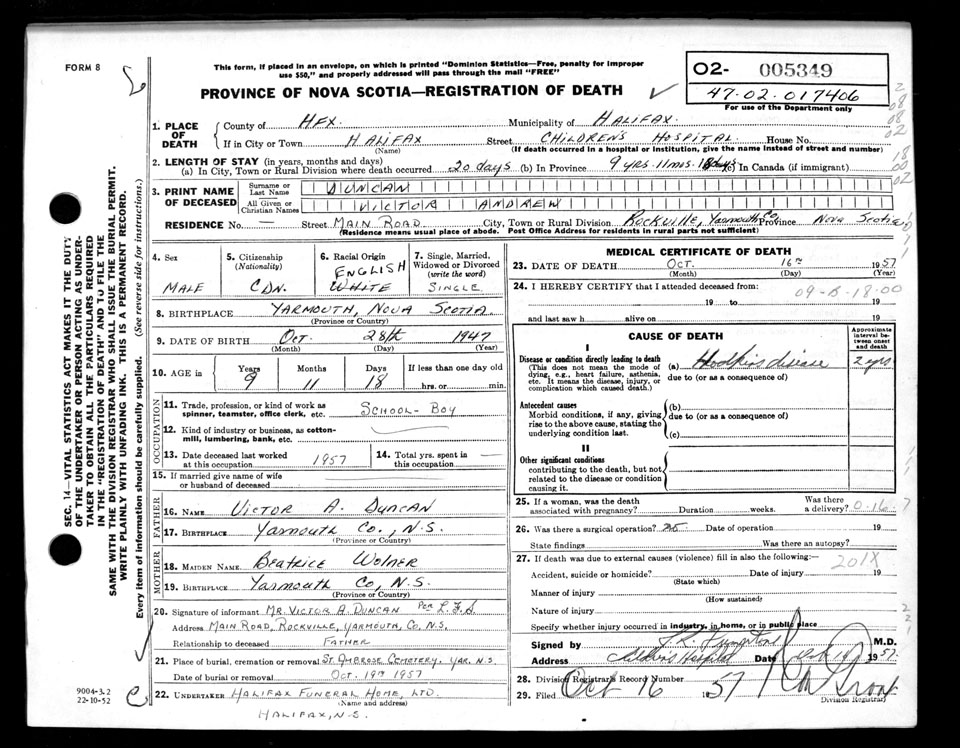 FORM 8
This form, if placed in an envelope, on which is printed "Dominion Statistics—Free, penalty for improper
use $50," and properly addressed will pass through the mail "FREE"
PROVINCE OF NOVA SCOTIA—REGISTRATION OF DEATH
O2- 005349
47-02-017406
For use of the Department only
1. PLACE OF DEATH County of HFX. Municipality of HALIFAX.
If in City or Town HALIFAX Street CHILDREN'S HOSPITAL. House No.
(Name) (If death occurred in a hospital or institution, give the name instead of street and number)
2. LENGTH OF STAY (in years, months and days)
(a) In City, Town or Rural Division where death occurred 20 days (b) In Province 9 yrs. 11 mos. 18 days (c) In Canada (if immigrant)
3. PRINT NAME OF DECEASED Surname or Last Name DUNCAN
All Given or Christian Names VICTOR ANDREW
RESIDENCE No. — Street MAIN ROAD City, Town or Rural Division ROCKVILLE, YARMOUTH Co. Province NOVA SCOTIA
(Residence means usual place of abode. Post Office Address for residents in rural parts not sufficient)
4. Sex MALE
5. Citizenship (Nationality) CDN.
6. Racial Origin ENGLISH WHITE
7. Single, Married, Widowed or Divorced (write the word) SINGLE
8. BIRTHPLACE YARMOUTH, NOVA SCOTIA
(Province or Country)
9. DATE OF BIRTH OCT. 28th 1947
(Month) (Day) (Year)
10. AGE in Years 9 Months 11 Days 18 If less than one day old hrs. or min.
OCCUPATION
11. Trade, profession, or kind of work as spinner, teamster, office clerk, etc. SCHOOL-BOY
12. Kind of industry or business, as cotton-mill, lumbering, bank, etc.
13. Date deceased last worked at this occupation 1957
14. Total yrs. spent in this occupation —
15. If married give name of wife or husband of deceased
FATHER
16. NAME VICTOR A. DUNCAN
17. BIRTHPLACE YARMOUTH Co., N.S.
(Province or Country)
MOTHER
18. MAIDEN NAME BEATRICE WOLNER
19. BIRTHPLACE YARMOUTH Co, N.S.
(Province or Country)
20. Signature of informant MR. VICTOR A DUNCAN Per L.F.S.
Address MAIN ROAD, ROCKVILLE, YARMOUTH, Co, N.S.
Relationship to deceased FATHER
21. Place of burial, cremation or removal ST AMBROSE CEMETERY, YAR. N.S.
Date of burial or removal OCT. 19TH 1957
22. UNDERTAKER HALIFAX FUNERAL HOME, LTD.
(Name and address)
HALIFAX, N.S.
MEDICAL CERTIFICATE OF DEATH
23. DATE OF DEATH OCT. 16TH 1957
(Month) (Day) (Year)
24. I HEREBY CERTIFY that I attended deceased from:
19 to 19
and last saw h alive on 19
CAUSE OF DEATH
Approximate interval between onset and death
I
Disease or condition directly leading to death (a) Hodkins disease 2 yrs
(This does not mean the mode of dying, e.g., heart failure, asthenia, etc. It means the disease, injury, or complication which caused death.)
due to (or as a consequence of)
Antecedent causes (b)
Morbid conditions, if any, giving rise to the above cause, stating the underlying condition last.
due to (or as a consequence of)
(c)
II
Other significant conditions
contributing to the death, but not related to the disease or condition causing it.
25. If a woman, was the death associated with pregnancy? Duration weeks. Was there a delivery?
26. Was there a surgical operation? no Date of operation 19
State findings Was there an autopsy?
27. If death was due to external causes (violence) fill in also the following:— 201X
Accident, suicide or homicide? Date of injury 19
(State which)
Manner of injury
(How sustained)
Nature of injury
Specify whether injury occurred in industry, in home, or in public place
Signed by M.D.
Address Childrens Hospital Date 1957
28. Division Registrar's Record Number
29. Filed Oct 16 1957
Division Registrar
SEC. 14—VITAL STATISTICS ACT MAKES IT THE DUTY
OF THE UNDERTAKER OR PERSON ACTING AS UNDER-
TAKER TO OBTAIN ALL THE PARTICULARS REQUIRED
IN THE "REGISTRATION OF DEATH" AND TO FILE THE
SAME WITH THE DIVISION REGISTRAR WHO SHALL ISSUE THE BURIAL PERMIT.
WRITE PLAINLY WITH UNFADING INK. THIS IS A PERMANENT RECORD.
Every item of information should be carefully supplied. (See reverse side for instructions.)
9004-3.2
22-10-52